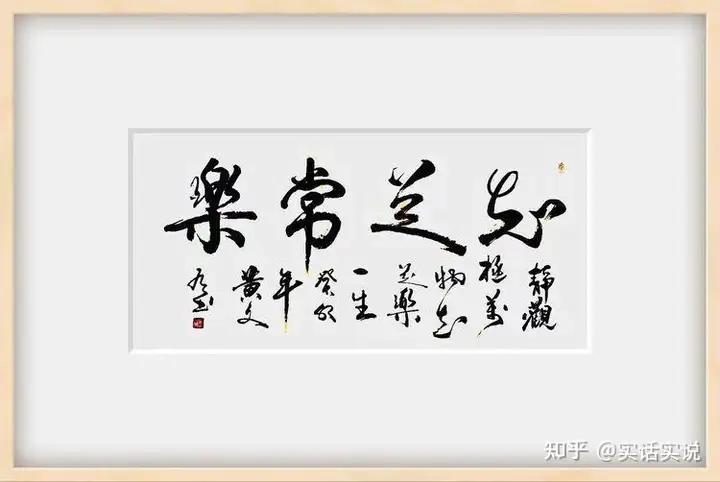 知足常樂
靜觀
極萬
物知
足樂
一生
癸卯
年
黃文
知乎 @实话实说